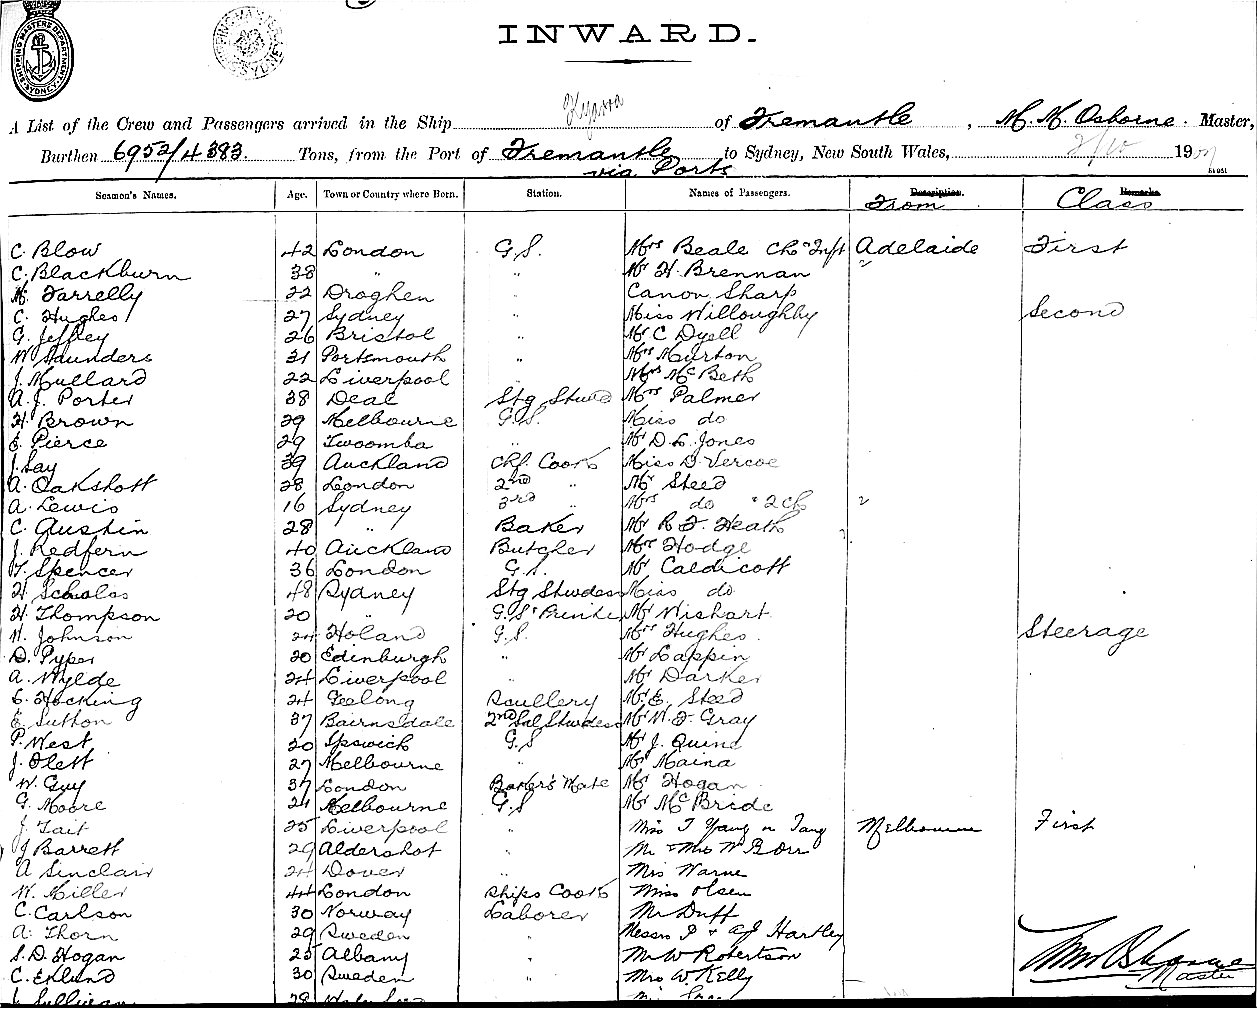 SHIPPING MASTERS DEPARTMENT. SYDNEY.
INWARD.
A List of the Crew and Passengers arrived in the Ship Kyarra of Fremantle, M. M. Osborne. Master,
Burthen 6952/4383. Tons, from the Port of Fremantle to Sydney, New South Wales, 2/10 190
via Ports
Seamen's Names. Age. Town or Country where Born. Station. Names of Passengers. Description. Remarks
From Class
C. Blow 42 London G.S. Mrs Beale Adelaide First
C. Blackburn 38 " " Mr H. Brennan "
M. Farrelly 22 Droghen " Canon Sharp
C. Hughes 27 Sydney " Miss Willoughby Second
G. Jeffley 26 Bristol " Mr C Dyell
W. Saunders 31 Portsmouth " Mrs Murton
J. Mullard 22 Liverpool " Mrs McBeth
A. J. Porter 38 Deal Stg Stwd Mrs Palmer
H. Brown 29 Melbourne G.S. Miss do
E. Pierce 29 Twoomba " Mr D. L. Jones
J. Lay 39 Auckland Chf. Cook Miss D. Vercoe
A. Oakshott 28 London 2nd " Mr Steed
A. Lewis 16 Sydney 3rd " Mrs do " 2 ch "
C. Austin 28 " Baker Mr R. F. Heath
J. Redfern 40 Auckland Butcher Mrs Hodge
T. Spencer 36 London G.S. Mr Caldicott
H. Scholas 48 Sydney Stg Stwdess Miss do
H. Thompson 20 " G.S. Mr Wishart
N. Johnson 24 Holand G.S. Mrs Hughes Steerage
D. Pyper 20 Edinburgh " Mr Lappin
A. Wylde 24 Liverpool Mr Darker
C. Hocking 24 Geelong Scullery Mr E. Steed
E. Sutton 37 Bairnsdale 2nd Sal Stwdess Mr W. F. Gray
P. West 20 Ipswich G.S Mr J. Quinn
J. Olett 27 Melbourne " Mr Maina
W. Guy 37 London Baker's Mate Mr Hogan
G. Moore 24 Melbourne G.S Mr McBride
J. Tait 25 Liverpool " Miss T Yang n Tang Melbourne First
J Barrett 29 Aldershot " Mr & Mrs W Borr
A Sinclair 24 Dover " Mrs Warne
W. Miller 44 London Ships Cook Miss Olsen
C. Carlson 30 Norway Laborer Mr Duff
A. Thorn 29 Sweden " Messrs J & A J Hartley
S. D. Hogan 25 Albany " Mr W Robertson
C. Eklund 30 Sweden " Mrs W Kelly
Master
J. Sullivan 28